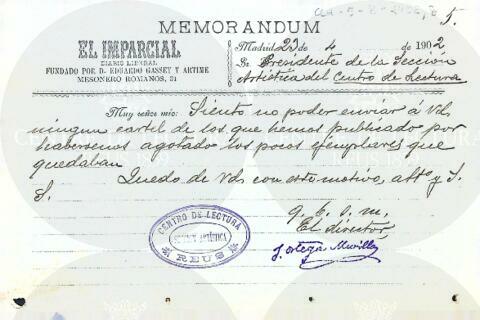 5.
MEMORANDUM
EL IMPARCIAL
DIARIO LIBERAL
FUNDADO POR D. EDUARDO GASSET Y ARTIME
MESONERO ROMANOS, 31
Madrid 23 de 4 de 1902
Sr. Presidente de la Sección
Artística del Centro de Lectura
Muy señor mío: Siento no poder enviar á Vds
ningun cartel de los que hemos publicado por
habersenos agotado los pocos ejemplares que
quedaban
Quedo de Vds con este motivo, atto y S.
S.
q. b. s. m.
El director
J. Ortega Munilla
CENTRO DE LECTURA
REUS